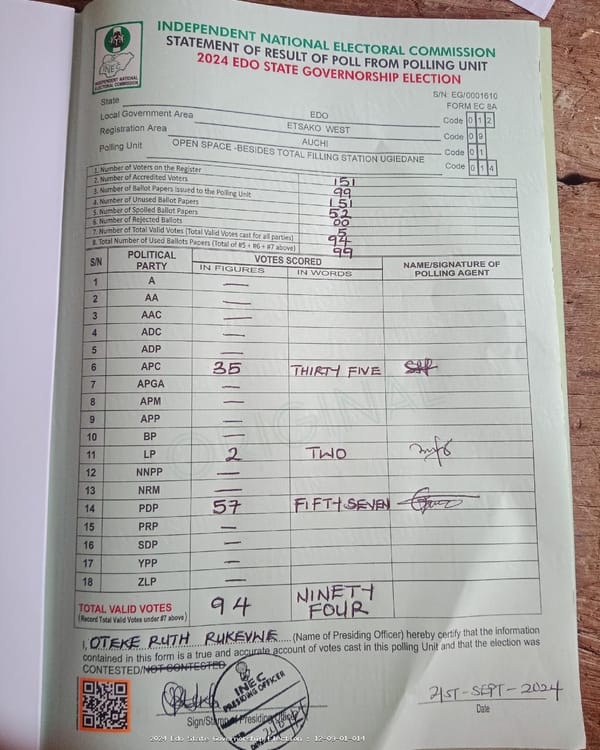 INEC
INDEPENDENT NATIONAL
ELECTORAL COMMISSION
INDEPENDENT NATIONAL ELECTORAL COMMISSION
STATEMENT OF RESULT OF POLL FROM POLLING UNIT
2024 EDO STATE GOVERNORSHIP ELECTION
S/N: EG/0001610
FORM EC 8A
State EDO Code 0 1 2
Local Government Area ETSAKO WEST Code 0 9
Registration Area AUCHI Code 0 1
Polling Unit OPEN SPACE -BESIDES TOTAL FILLING STATION UGIEDANE Code 0 1 4
1. Number of Voters on the Register 151
2. Number of Accredited Voters 99
3. Number of Ballot Papers Issued to the Polling Unit 151
4. Number of Unused Ballot Papers 52
5. Number of Spoiled Ballot Papers 00
6. Number of Rejected Ballots 5
7. Number of Total Valid Votes (Total Valid Votes cast for all parties) 94
8. Total Number of Used Ballots Papers (Total of #5 + #6 + #7 above) 99
S/N POLITICAL PARTY VOTES SCORED NAME/SIGNATURE OF POLLING AGENT
IN FIGURES IN WORDS
1 A —
2 AA —
3 AAC —
4 ADC —
5 ADP —
6 APC 35 THIRTY FIVE
7 APGA —
8 APM —
9 APP —
10 BP —
11 LP 2 TWO
12 NNPP —
13 NRM —
14 PDP 57 FIFTY SEVEN
15 PRP —
16 SDP —
17 YPP —
18 ZLP —
ORIGINAL
TOTAL VALID VOTES 94 NINETY FOUR
(Record Total Valid Votes under #7 above)
I, OTEKE RUTH RUKEVWE (Name of Presiding Officer) hereby certify that the information
contained in this form is a true and accurate account of votes cast in this polling Unit and that the election was
CONTESTED/NOT CONTESTED
INEC
PRESIDING OFFICER
21ST-SEPT-2024
Sign/Stamp of Presiding Officer
Date
2024 Edo State Governorship Election : 12-09-01-014